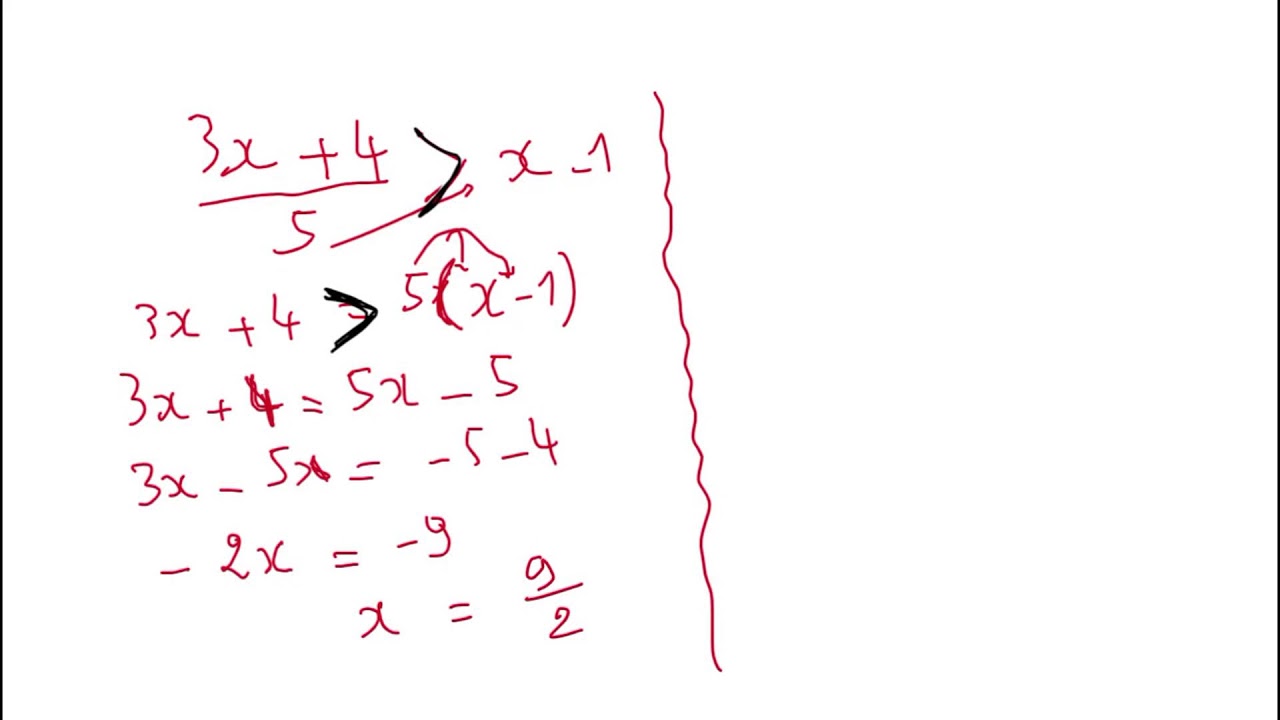 3x + 4 / 5 > x - 1
3x + 4 > 5(x - 1)
3x + 4 = 5x - 5
3x - 5x = -5 - 4
- 2x = -9
x = 9/2